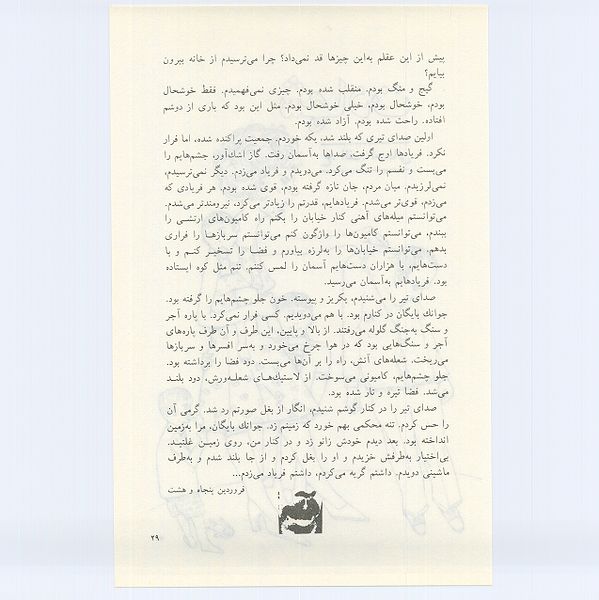 پیش از این عقلم به‌این چیزها قد نمی‌داد؟ چرا می‌ترسیدم از خانه بیرون
بیایم؟
گیج و منگ بودم. منقلب شده بودم. چیزی نمی‌فهمیدم. فقط خوشحال
بودم، خوشحال بودم، خیلی خوشحال بودم. مثل این بود که باری از دوشم
افتاده. راحت شده بودم. آزاد شده بودم.
اولین صدای تیری که بلند شد، یکه خوردم. جمعیت پراکنده شده، اما فرار
نکرد. فریادها اوج گرفت. صداها به‌آسمان رفت. گاز اشك‌آور، چشم‌هایم را
می‌بست و نفسم را تنگ می‌کرد. می‌دویدم و فریاد می‌زدم. دیگر نمی‌ترسیدم،
نمی‌لرزیدم. میان مردم، جان تازه گرفته بودم، قوی شده بودم. هر فریادی که
می‌زدم، قوی‌تر می‌شدم. فریادهایم، قدرتم را زیادتر می‌کرد، نیرومندتر می‌شدم.
می‌توانستم میله‌های آهنی کنار خیابان را بکنم راه کامیون‌های ارتشی را
ببندم. می‌توانستم کامیون‌ها را واژگون کنم می‌توانستم سربازها را فراری
بدهم. می‌توانستم خیابان‌ها را به‌لرزه بیاورم و فضا را تسخیر کنم و با
دست‌هایم، با هزاران دست‌هایم آسمان را لمس کنم. تنم مثل کوه ایستاده
بود. فریادهایم به‌آسمان می‌رسید.
صدای تیر را می‌شنیدم، یکریز و پیوسته. خون جلو چشم‌هایم را گرفته بود.
جوانك پایگان در کنارم بود. با هم می‌دویدیم. کسی فرار نمی‌کرد. با پاره آجر
و سنگ به‌جنگ گلوله می‌رفتند. از بالا و پایین، این طرف و آن طرف پاره‌های
آجر و سنگ‌هایی بود که در هوا چرخ می‌خورد و به‌سر افسرها و سربازها
می‌ریخت. شعله‌های آتش، راه را بر آن‌ها می‌بست. دود فضا را برداشته بود.
جلو چشم‌هایم، کامیونی می‌سوخت. از لاستیك‌های شعله‌ورش، دود بلند
می‌شد. فضا تیره و تار شده بود.
صدای تیر را در کنار گوشم شنیدم، انگار از بغل صورتم رد شد. گرمی آن
را حس کردم. تنه محکمی بهم خورد که زمینم زد. جوانك پایگان، مرا به‌زمین
انداخته بود. بعد دیدم خودش زانو زد و در کنار من، روی زمین غلتید.
بی‌اختیار به‌طرفش خزیدم و او را بغل کردم و از جا بلند شدم و به‌طرف
ماشینی دویدم. داشتم گریه می‌کردم، داشتم فریاد می‌زدم...
فروردین پنجاه و هشت
۲۹